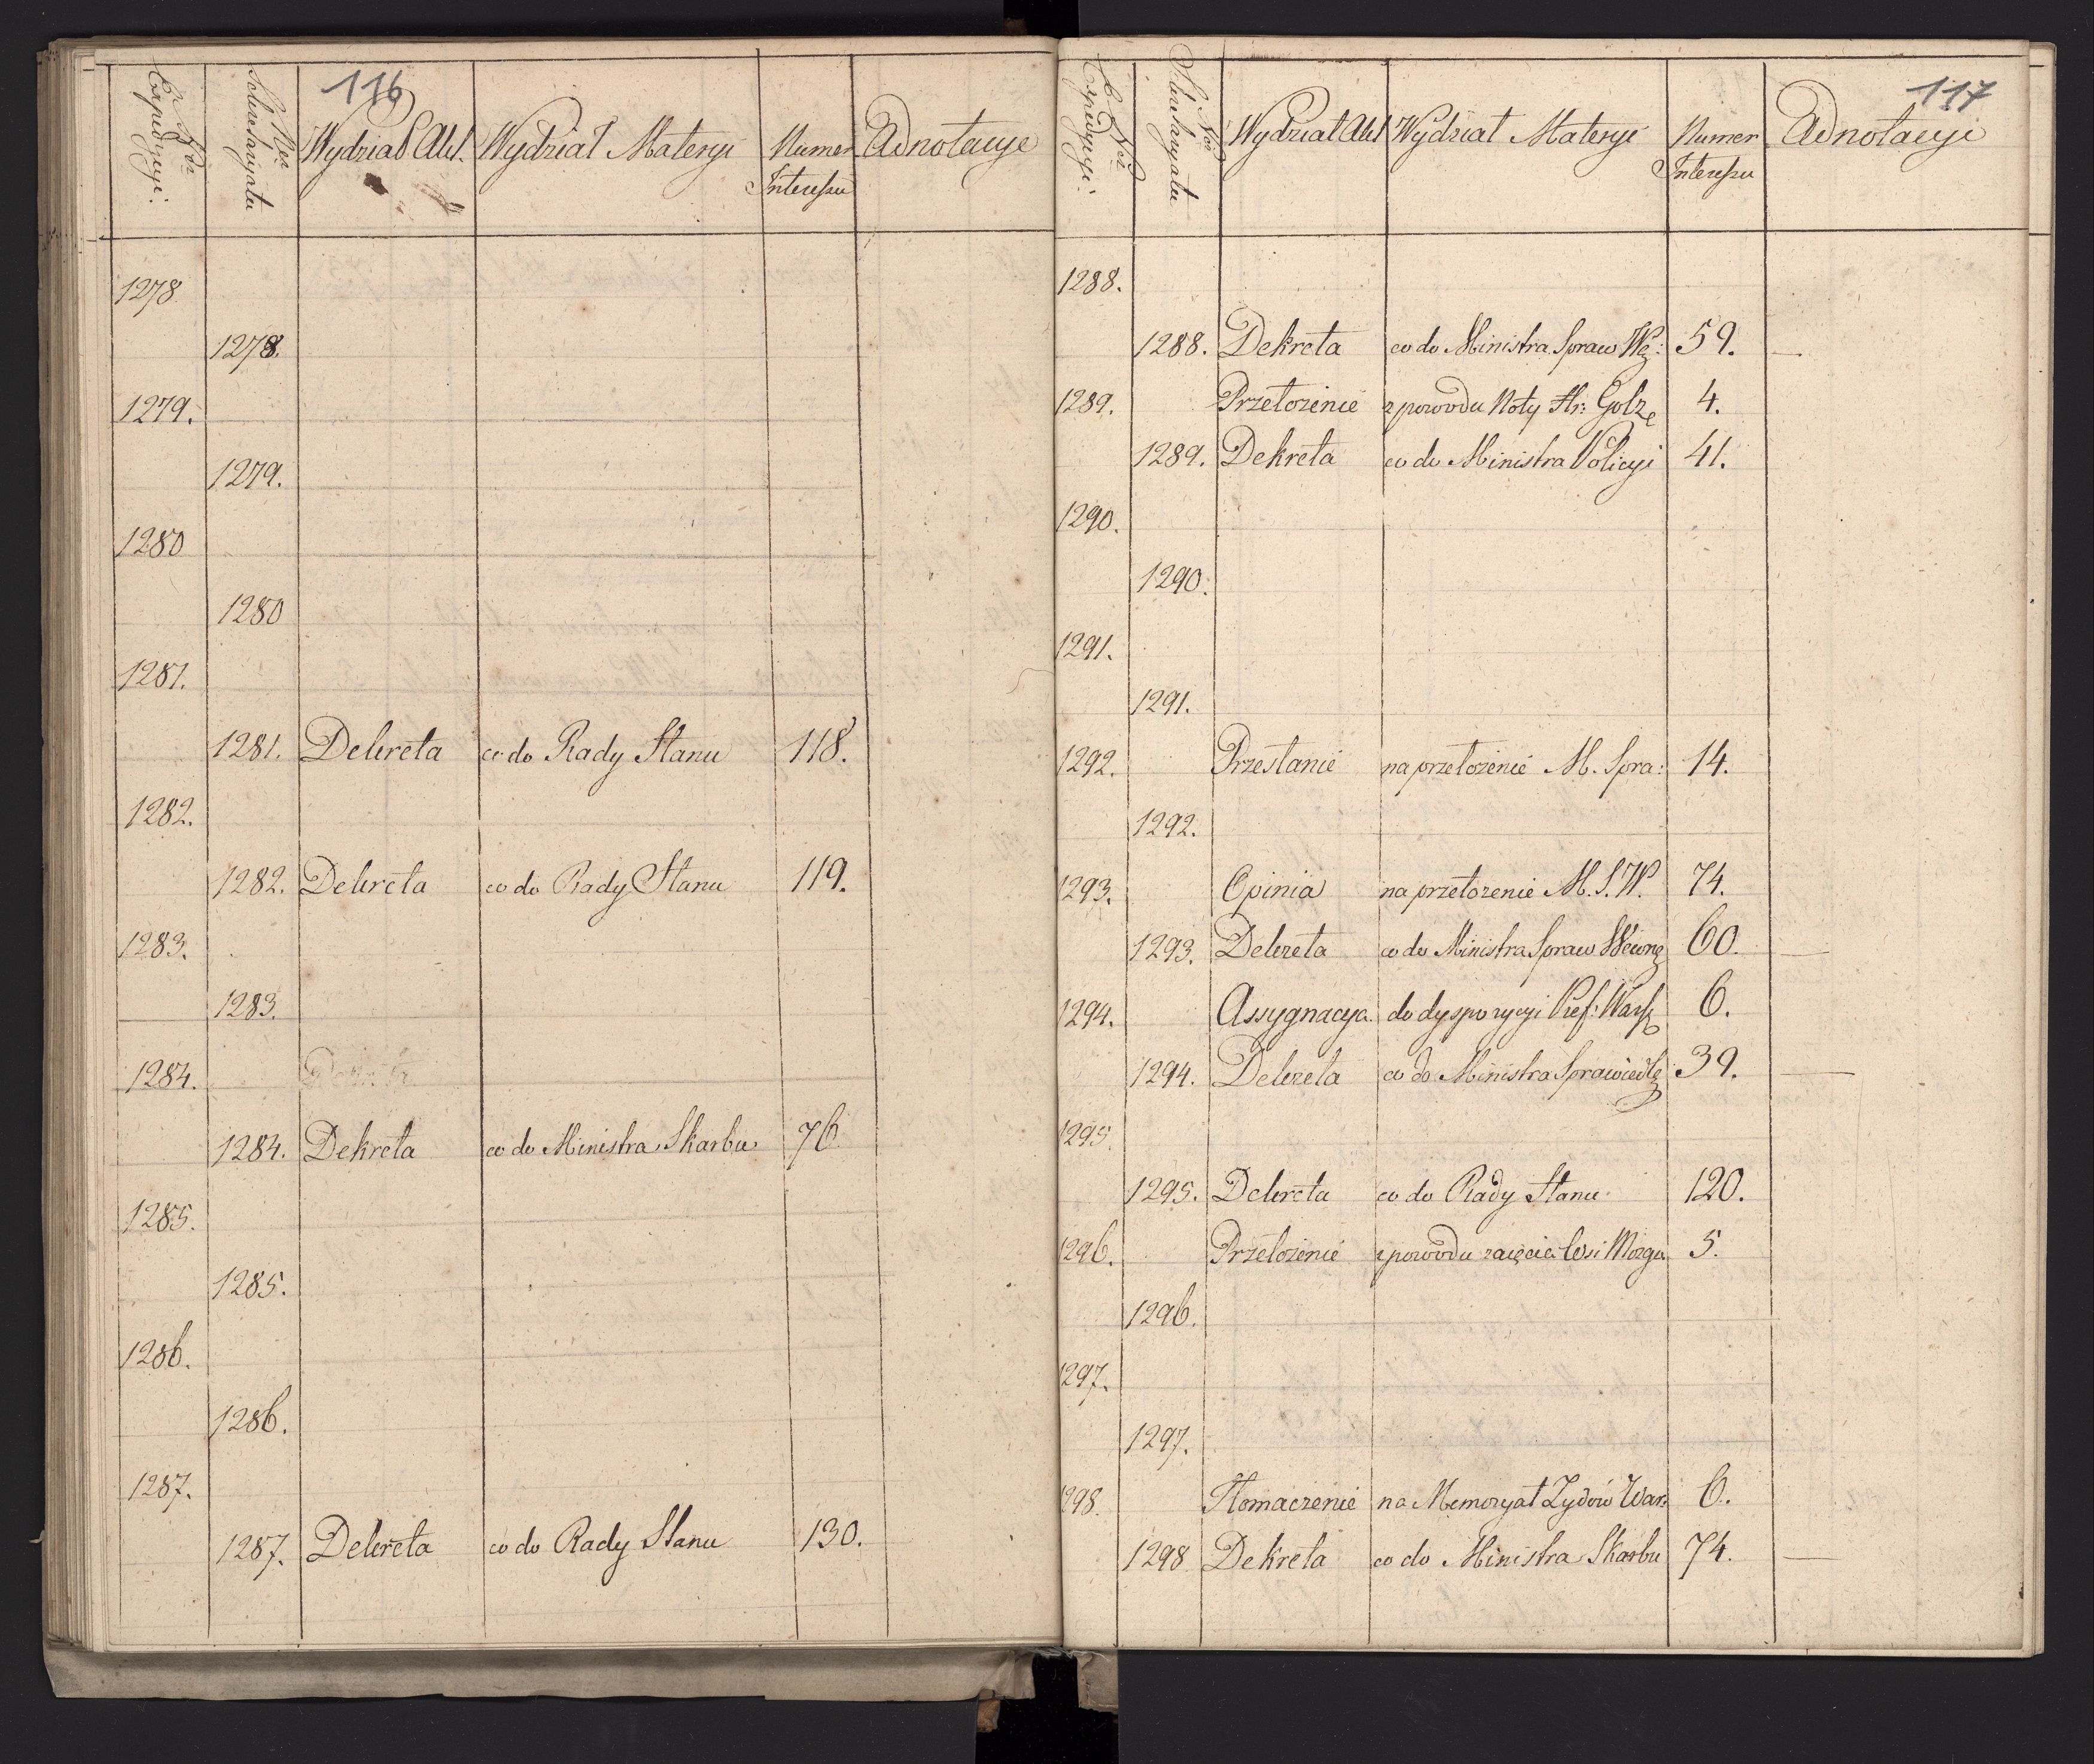 116
Expedycyi: Sekretaryatu Wydział Akt. Wydział Materyi Numer Interessu Adnotacye
1278
1278.
1279.
1279.
1280
1280
1281.
1281. Dekreta co do Rady Stanu 118.
1282.
1282. Dekreta co do Rady Stanu 119.
1283.
1283.
1284.
1284. Dekreta co do Ministra Skarbu 76
1285.
1285.
1286.
1286.
1287.
1287. Dekreta co do Rady Stanu 130.
117
Expedycyi: Sekretaryatu Wydział Akt Wydział Materyi Numer Interessu Adnotacyi
1288.
1288. Dekreta co do Ministra Spraw We: 59. —
1289. Przełożenie z powodu Noty Hr: Golz 4.
1289. Dekreta co do Ministra Policyi 41.
1290.
1290.
1291.
1291.
1292. Przesłanie na przełożenie M. Spra: 14.
1292.
1293. Opinia na przełożenie M. S. W. 74.
1293. Dekreta co do Ministra Spraw Wewnę 60. —
1294. Assygnacya do dyspozycyi Pref: Warsz 6.
1294. Dekreta co do Ministra Sprawiedl 39. —
1295
1295. Dekreta co do Rady Stanu 120.
1296. Przełożenie z powodu zaięcia Wsi 5.
1296.
1297.
1297.
1298. Tłomaczenie na Memoryał Zydów War: 6.
1298 Dekreta co do Ministra Skarbu 74. —